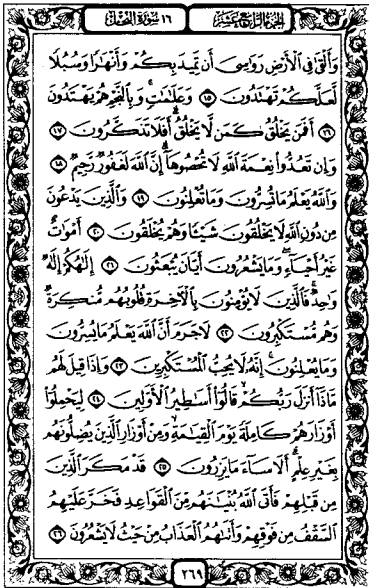 الجزء الرابع عشر ١٦ سورة النحل
وَأَلْقَىٰ فِي الْأَرْضِ رَوَاسِيَ أَن تَمِيدَ بِكُمْ وَأَنْهَارًا وَسُبُلًا
لَّعَلَّكُمْ تَهْتَدُونَ ۝١٥ وَعَلَامَاتٍ ۚ وَبِالنَّجْمِ هُمْ يَهْتَدُونَ
۝١٦ أَفَمَن يَخْلُقُ كَمَن لَّا يَخْلُقُ ۗ أَفَلَا تَذَكَّرُونَ ۝١٧
وَإِن تَعُدُّوا نِعْمَةَ اللَّهِ لَا تُحْصُوهَا ۗ إِنَّ اللَّهَ لَغَفُورٌ رَّحِيمٌ ۝١٨
وَاللَّهُ يَعْلَمُ مَا تُسِرُّونَ وَمَا تُعْلِنُونَ ۝١٩ وَالَّذِينَ يَدْعُونَ
مِن دُونِ اللَّهِ لَا يَخْلُقُونَ شَيْئًا وَهُمْ يُخْلَقُونَ ۝٢٠ أَمْوَاتٌ
غَيْرُ أَحْيَاءٍ ۖ وَمَا يَشْعُرُونَ أَيَّانَ يُبْعَثُونَ ۝٢١ إِلَٰهُكُمْ إِلَٰهٌ
وَاحِدٌ ۚ فَالَّذِينَ لَا يُؤْمِنُونَ بِالْآخِرَةِ قُلُوبُهُم مُّنكِرَةٌ
وَهُم مُّسْتَكْبِرُونَ ۝٢٢ لَا جَرَمَ أَنَّ اللَّهَ يَعْلَمُ مَا يُسِرُّونَ
وَمَا يُعْلِنُونَ ۚ إِنَّهُ لَا يُحِبُّ الْمُسْتَكْبِرِينَ ۝٢٣ وَإِذَا قِيلَ لَهُم
مَّاذَا أَنزَلَ رَبُّكُمْ ۙ قَالُوا أَسَاطِيرُ الْأَوَّلِينَ ۝٢٤ لِيَحْمِلُوا
أَوْزَارَهُمْ كَامِلَةً يَوْمَ الْقِيَامَةِ ۙ وَمِنْ أَوْزَارِ الَّذِينَ يُضِلُّونَهُم
بِغَيْرِ عِلْمٍ ۗ أَلَا سَاءَ مَا يَزِرُونَ ۝٢٥ قَدْ مَكَرَ الَّذِينَ
مِن قَبْلِهِمْ فَأَتَى اللَّهُ بُنْيَانَهُم مِّنَ الْقَوَاعِدِ فَخَرَّ عَلَيْهِمُ
السَّقْفُ مِن فَوْقِهِمْ وَأَتَاهُمُ الْعَذَابُ مِنْ حَيْثُ لَا يَشْعُرُونَ ۝٢٦
٢٦٩